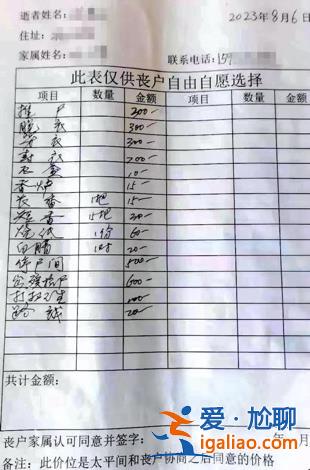 逝者姓名： 2023年8月6日
住址：
家属姓名： 联系电话：159
此表仅供丧户自由自愿选择
项目 数量 金额 项目 数量 金额
300-
脱衣 300-
穿衣 300-
寿衣 200-
10-
香炉 15-
长香 1把 15-
短香 15把 300-
烧纸 1份 60-
白腊 1对 20-
停尸间 500-
600-
打扫卫生
20-
共计金额：
丧户家属认可同意并签字： 年 月
备注：此价位是太平间和丧户协商之后同意的价格
爱·尬聊
igaliao.com